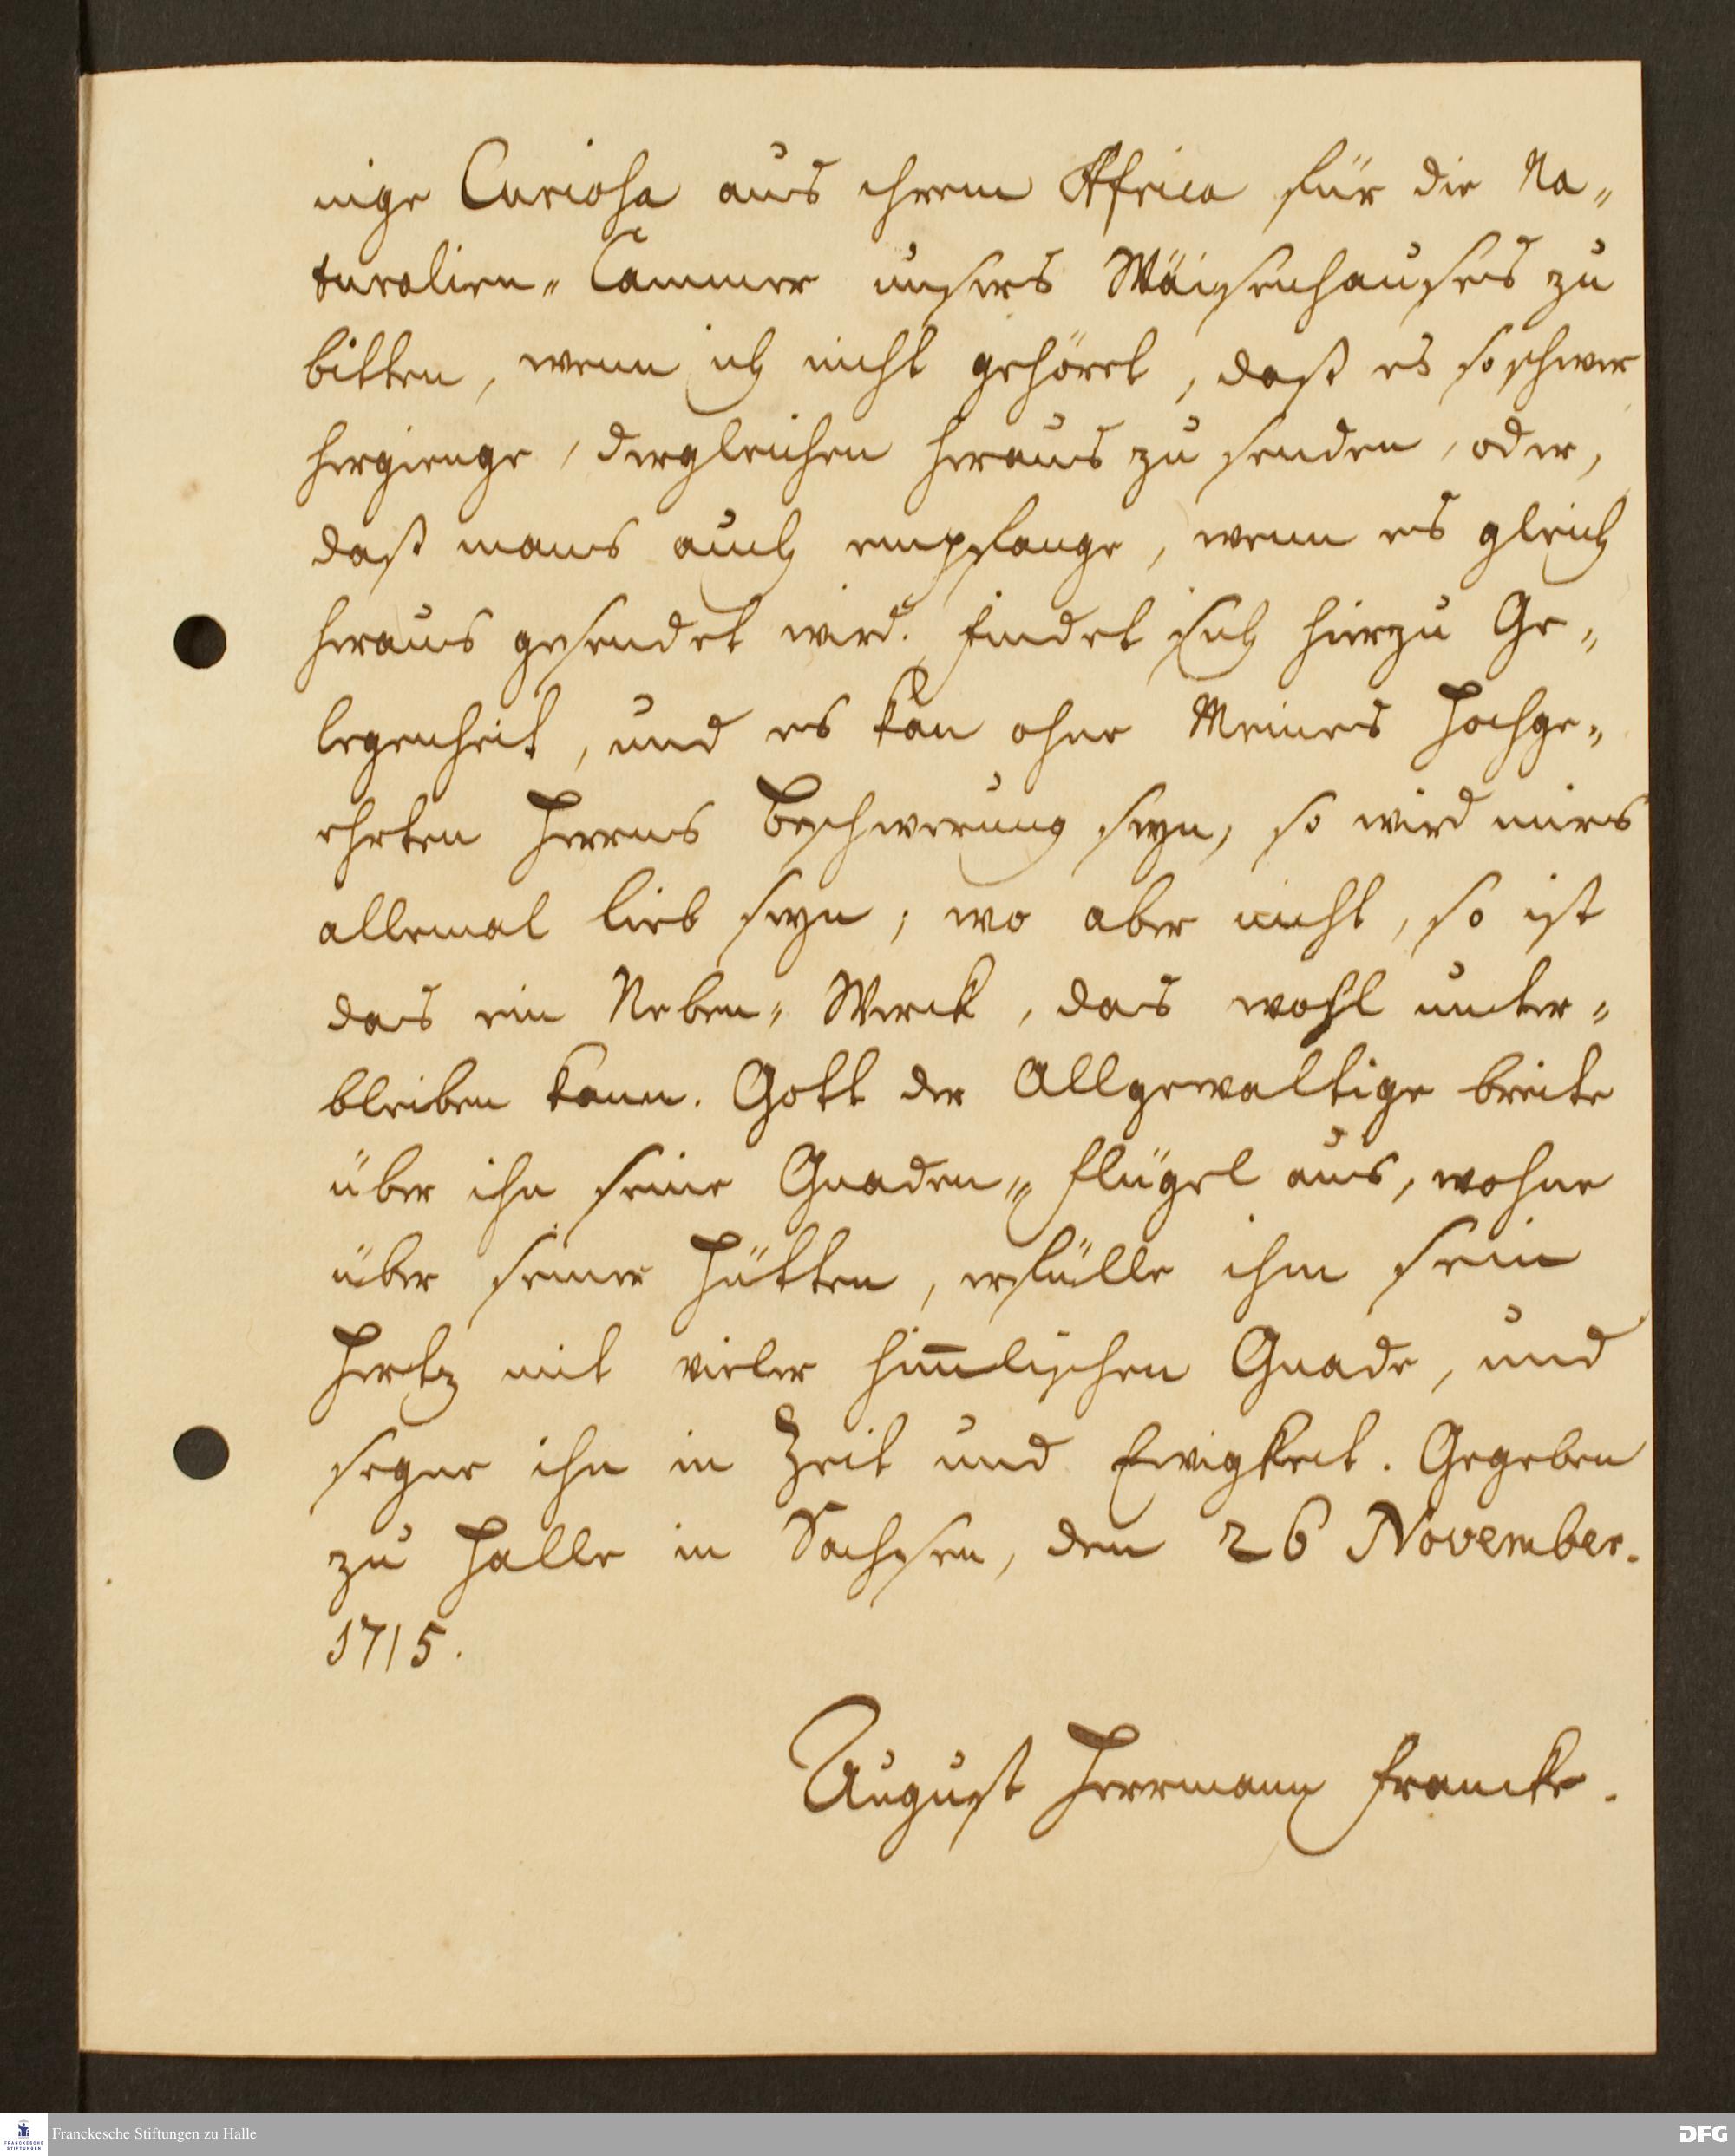 nige Curiosa aus ihrem Africa für die Na„
turalien„Cammer unsers Wäisenhauses zu
bitten, wenn ich nicht gehöret, daß es so schwer
hergienge, dergleichen heraus zu senden, oder,
daß mans auch empfange, wenn es gleich
heraus gesendet wird. Findet sich hierzu Ge„
legenheit, und es kan ohne Meines Hochge„
ehrten Herrns Beschwerung seyn, so wird mirs
allemal lieb seyn; wo aber nicht, so ist
das ein Neben„Werck, das wohl unter„
bleiben kann. Gott der Allgewaltige breite
über ihn seine Gnaden„Flügel aus, wohne
über seiner Hütten, erfülle ihm sein
Hertz mit vieler him̅lischen Gnade, und
segne ihn in Zeit und Ewigkeit. Gegeben
zu Halle in Sachsen, den 26 November.
1715.
August Herrmann Francke.
FRANCKESCHE STIFTUNGEN
Franckesche Stiftungen zu Halle
DFG